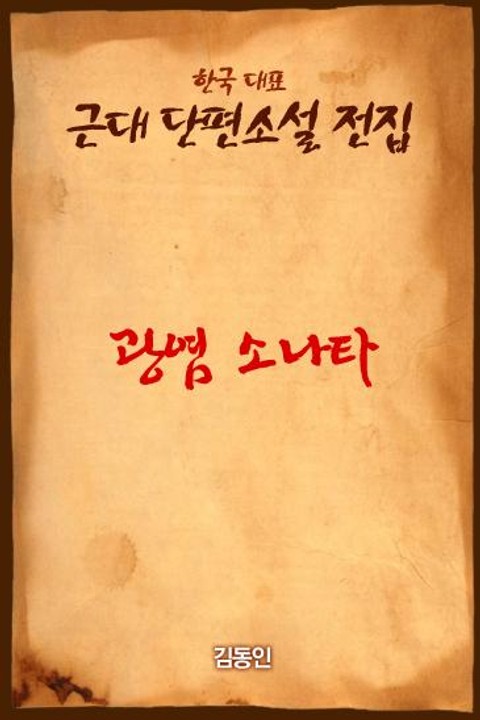 한국 대표
근대 단편소설 전집
광염 소나타
김동인